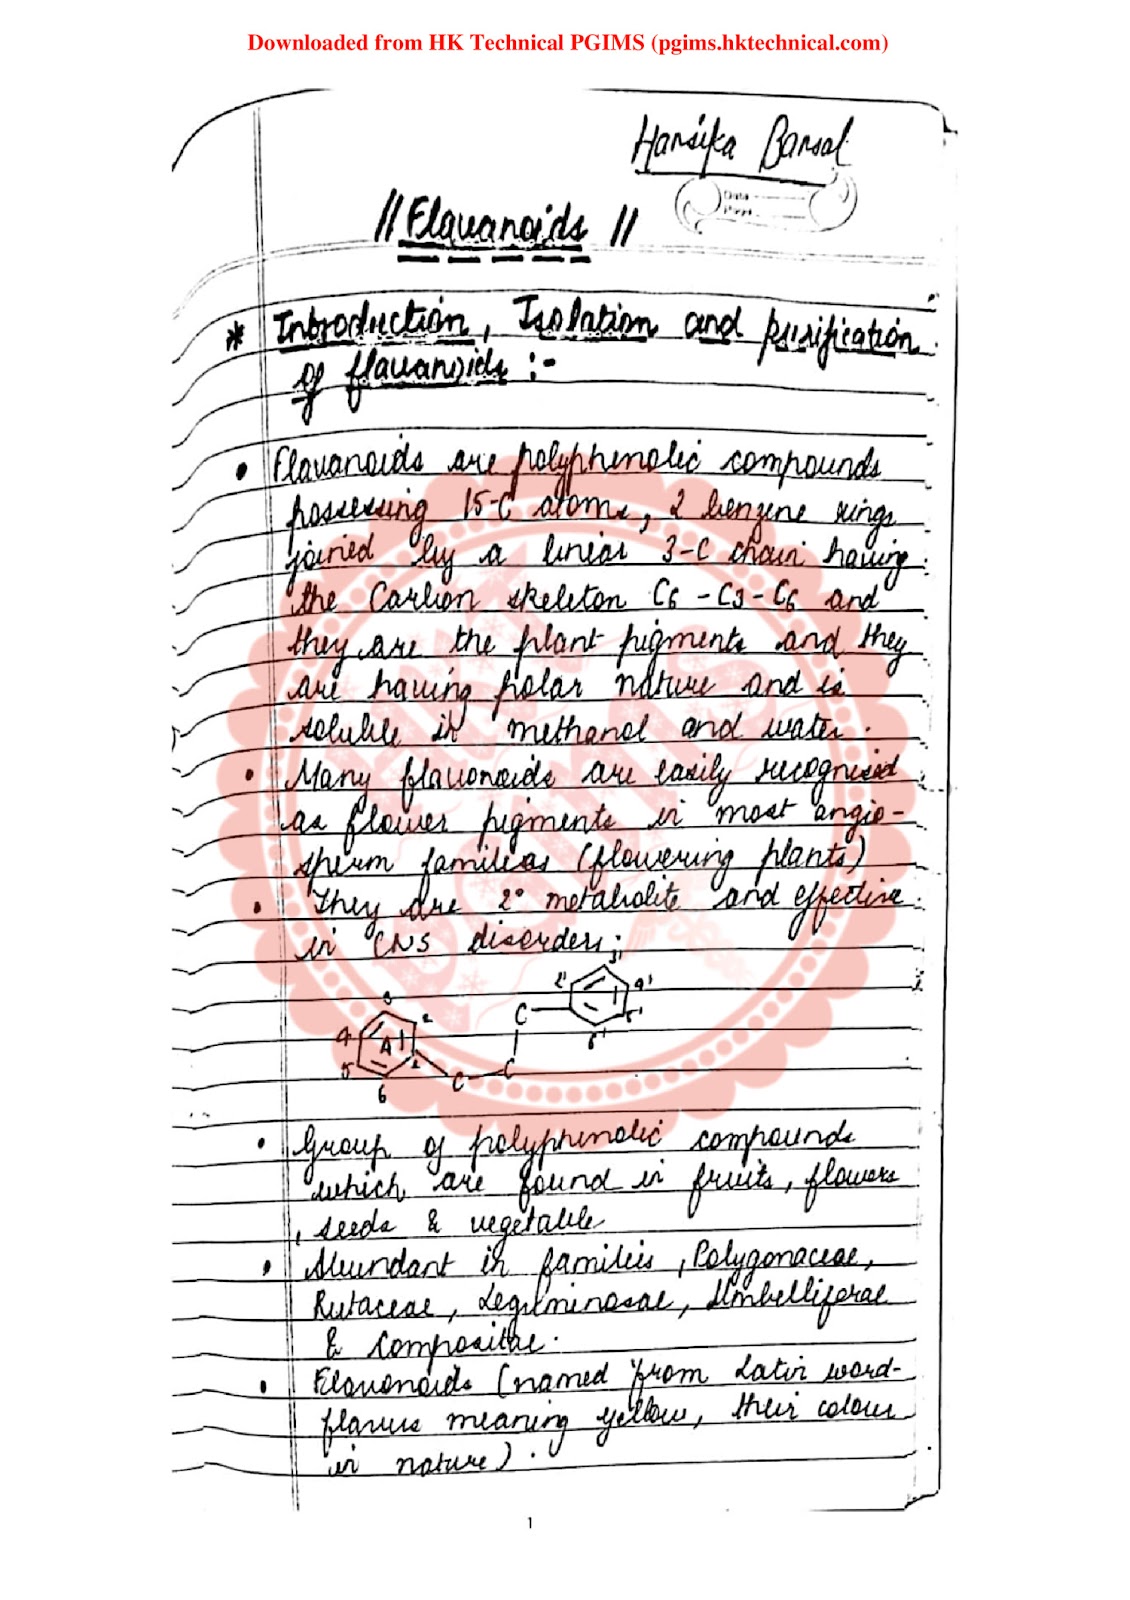 Downloaded from HK Technical PGIMS (pgims.hktechnical.com)
Hansika Bansal
Date
Page
// Flavanoids //
* Introduction, Isolation and purification
of flavanoids :-
• Flavanoids are polyphenolic compounds
possessing 15-C atoms, 2 benzene rings
joined by a linear 3-C chain having
the Carbon skeleton C6 - C3 - C6 and
they are the plant pigments and they
are having polar nature and is
soluble in methanol and water.
• Many flavonoids are easily recognised
as flower pigments in most angio-
sperm families (flowering plants)
• They are 2° metabolite and effective
in CNS disorders.
3'
2' 4'
3 C 5'
4 2 6'
A
5 1 C C
6
• Group of polyphenolic compounds
which are found in fruits, flowers
, seeds & vegetable
• Abundant in families, Polygonaceae,
Rutaceae, Leguminosae, Umbelliferae
& Compositae.
• Flavonoids (named from Latin word-
flavus meaning yellow, their colour
in nature).
1